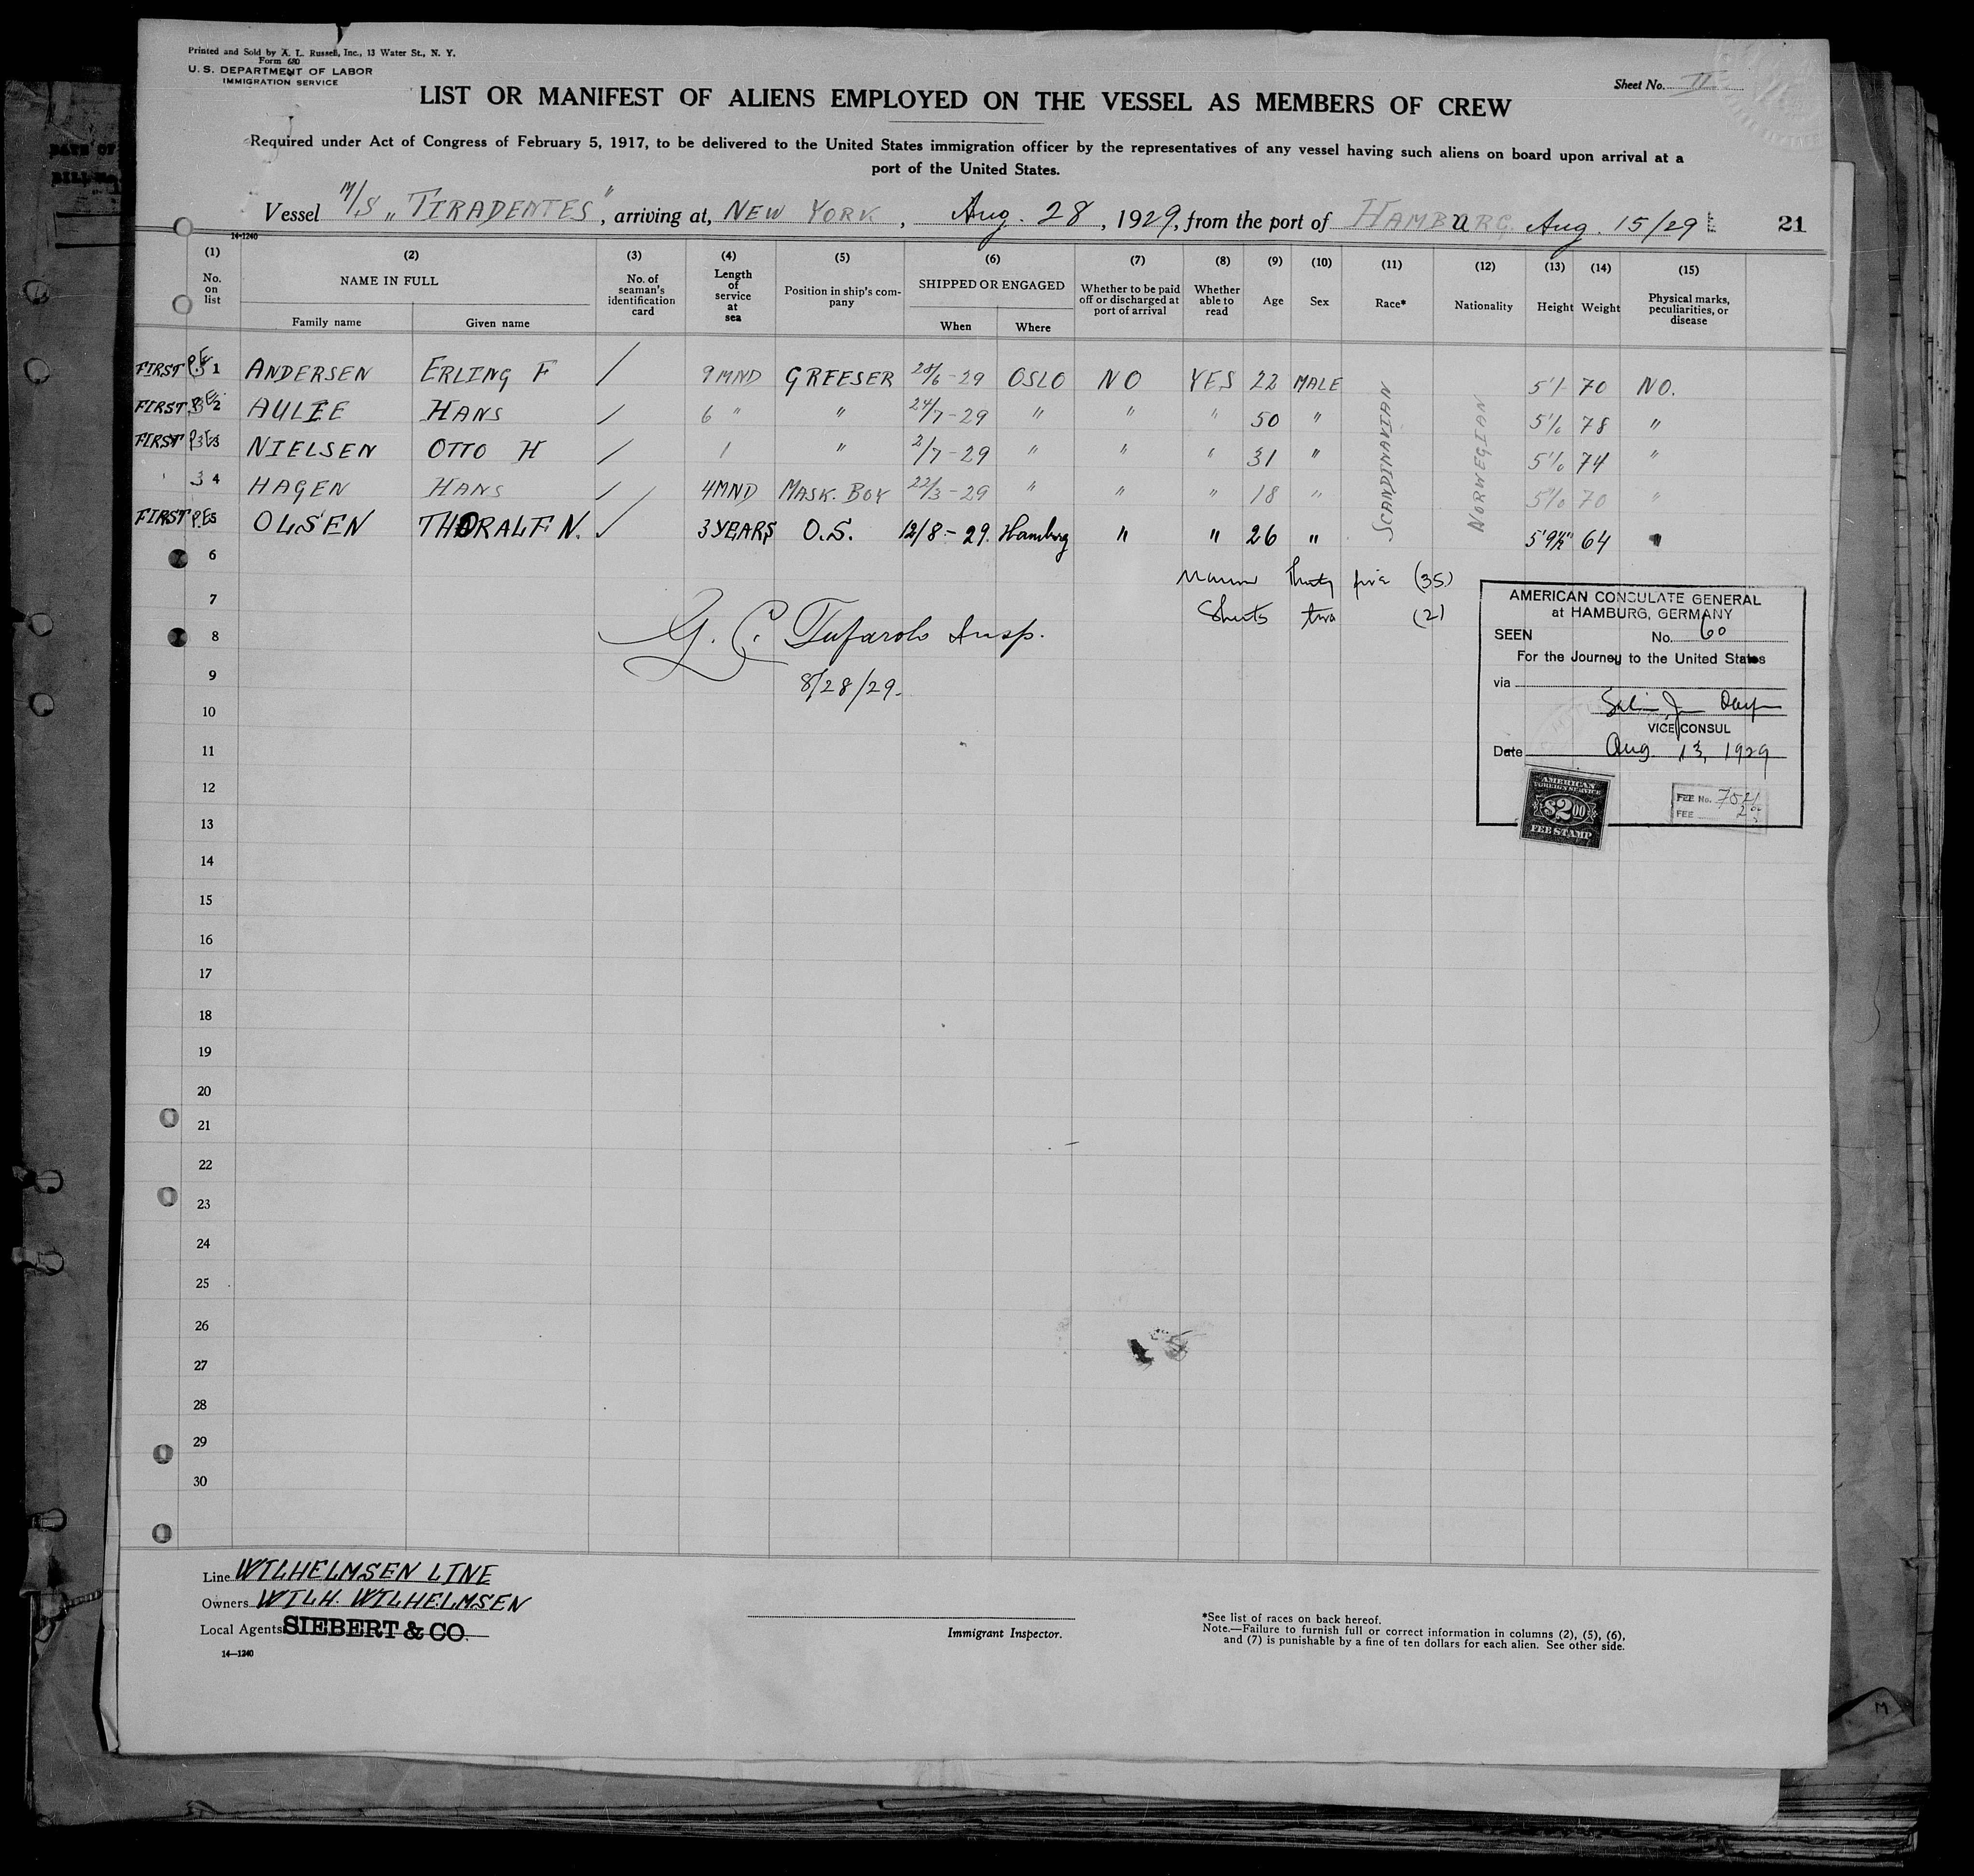 Printed and Sold by A. L. Russell, Inc., 13 Water St., N. Y.
Form 680
U. S. DEPARTMENT OF LABOR
IMMIGRATION SERVICE
Sheet No. II
LIST OR MANIFEST OF ALIENS EMPLOYED ON THE VESSEL AS MEMBERS OF CREW
Required under Act of Congress of February 5, 1917, to be delivered to the United States immigration officer by the representatives of any vessel having such aliens on board upon arrival at a
port of the United States.
Vessel M/S „TIRADENTES", arriving at, NEW YORK, Aug. 28, 1929, from the port of HAMBURG. Aug. 15/29 21
14-1240
(1) (2) (3) (4) (5) (6) (7) (8) (9) (10) (11) (12) (13) (14) (15)
No. on list NAME IN FULL No. of seaman's identification card Length of service at sea Position in ship's company SHIPPED OR ENGAGED Whether to be paid off or discharged at port of arrival Whether able to read Age Sex Race* Nationality Height Weight Physical marks, peculiarities, or disease
Family name Given name When Where
FIRST P.E. 1 ANDERSEN ERLING F / 9 MND GREESER 28/6-29 OSLO NO YES 22 MALE SCANDINAVIAN NORWEGIAN 5'1 70 NO.
FIRST P.E. 2 AULIE HANS / 6 " " 24/7-29 " " " 50 " 5'10 78 "
FIRST P.E. 3 NIELSEN OTTO H / 1 " 2/7-29 " " " 31 " 5'10 74 "
3 4 HAGEN HANS / 4MND MASK. BOY 22/3-29 " " " 18 " 70 "
FIRST P.E. 5 OLSEN THORALF N. ✓ 3 YEARS O.S. 12/8-29. Hamburg " " 26 " 5'9½" 64 "
6 thirty five (35)
7 Sheets two (2)
8 G. C. Tufarolo Insp.
9 8/28/29.
10
11
12
13
14
15
16
17
18
19
20
21
22
23
24
25
26
27
28
29
30
AMERICAN CONSULATE GENERAL
at HAMBURG, GERMANY
SEEN No. 60
For the Journey to the United States
via
VICE CONSUL
Date Aug. 13, 1929
AMERICAN
FOREIGN SERVICE
$2.00
FEE STAMP
FEE No.
FEE
Line WILHELMSEN LINE
Owners WILH. WILHELMSEN
Local Agents SIEBERT & CO.
14—1240
Immigrant Inspector.
*See list of races on back hereof.
Note.—Failure to furnish full or correct information in columns (2), (5), (6),
and (7) is punishable by a fine of ten dollars for each alien. See other side.